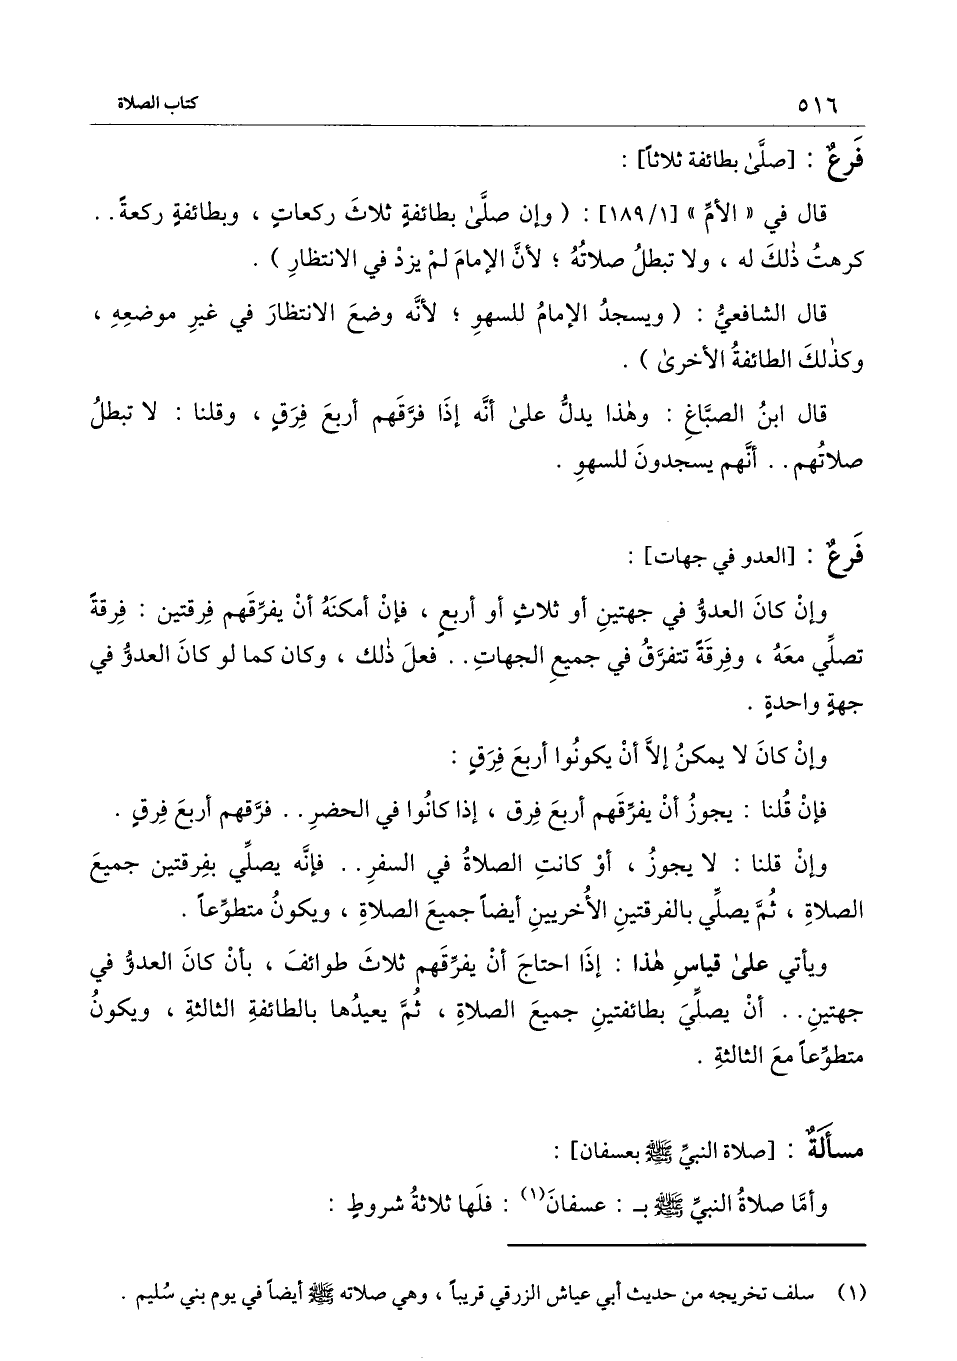 ٥١٦ كتاب الصلاة
فَرعٌ : [صلَّىٰ بطائفة ثلاثاً] :
قال في « الأمِّ » [١/ ١٨٩] : ( وإن صلَّىٰ بطائفةٍ ثلاثَ ركعاتٍ ، وبطائفةٍ ركعةً . .
كرهتُ ذٰلكَ له ، ولا تبطلُ صلاتُهُ ؛ لأنَّ الإمامَ لمْ يزدْ في الانتظارِ ) .
قال الشافعيُّ : ( ويسجدُ الإمامُ للسهوِ ؛ لأنَّه وضعَ الانتظارَ في غيرِ موضعِهِ ،
وكذٰلكَ الطائفةُ الأخرىٰ ) .
قال ابنُ الصبَّاغِ : وهٰذا يدلُّ علىٰ أنَّه إذَا فرَّقَهم أربعَ فِرَقٍ ، وقلنا : لا تبطلُ
صلاتُهم . . أنَّهم يسجدونَ للسهوِ .
فَرعٌ : [العدو في جهات] :
وإنْ كانَ العدوُّ في جهتينِ أو ثلاثٍ أو أربعٍ ، فإنْ أمكنَهُ أنْ يفرِّقَهم فِرقتين : فِرقةً
تصلِّي معَهُ ، وفِرقَةً تتفرَّقُ في جميعِ الجهاتِ . . فعلَ ذٰلك ، وكان كما لو كانَ العدوُّ في
جهةٍ واحدةٍ .
وإنْ كانَ لا يمكنُ إلاَّ أنْ يكونُوا أربعَ فِرَقٍ :
فإنْ قُلنا : يجوزُ أنْ يفرِّقَهم أربعَ فِرق ، إذا كانُوا في الحضرِ . . فرَّقهم أربعَ فِرقٍ .
وإنْ قلنا : لا يجوزُ ، أوْ كانتِ الصلاةُ في السفرِ . . فإنَّه يصلِّي بفِرقتين جميعَ
الصلاةِ ، ثُمَّ يصلِّي بالفرقتينِ الأُخريينِ أيضاً جميعَ الصلاةِ ، ويكونُ متطوِّعاً .
ويأتي علىٰ قياسِ هٰذا : إذَا احتاجَ أنْ يفرِّقَهم ثلاثَ طوائفَ ، بأنْ كانَ العدوُّ في
جهتينِ . . أنْ يصلِّيَ بطائفتينِ جميعَ الصلاةِ ، ثُمَّ يعيدُها بالطائفةِ الثالثةِ ، ويكونُ
متطوِّعاً معَ الثالثةِ .
مسألَةٌ : [صلاة النبيِّ ﷺ بعسفان] :
وأمَّا صلاةُ النبيِّ ﷺ بـ : عسفانَ(١) : فلَها ثلاثةُ شروطٍ :
(١) سلف تخريجه من حديث أبي عياش الزرقي قريباً ، وهي صلاته ﷺ أيضاً في يوم بني سُليم .